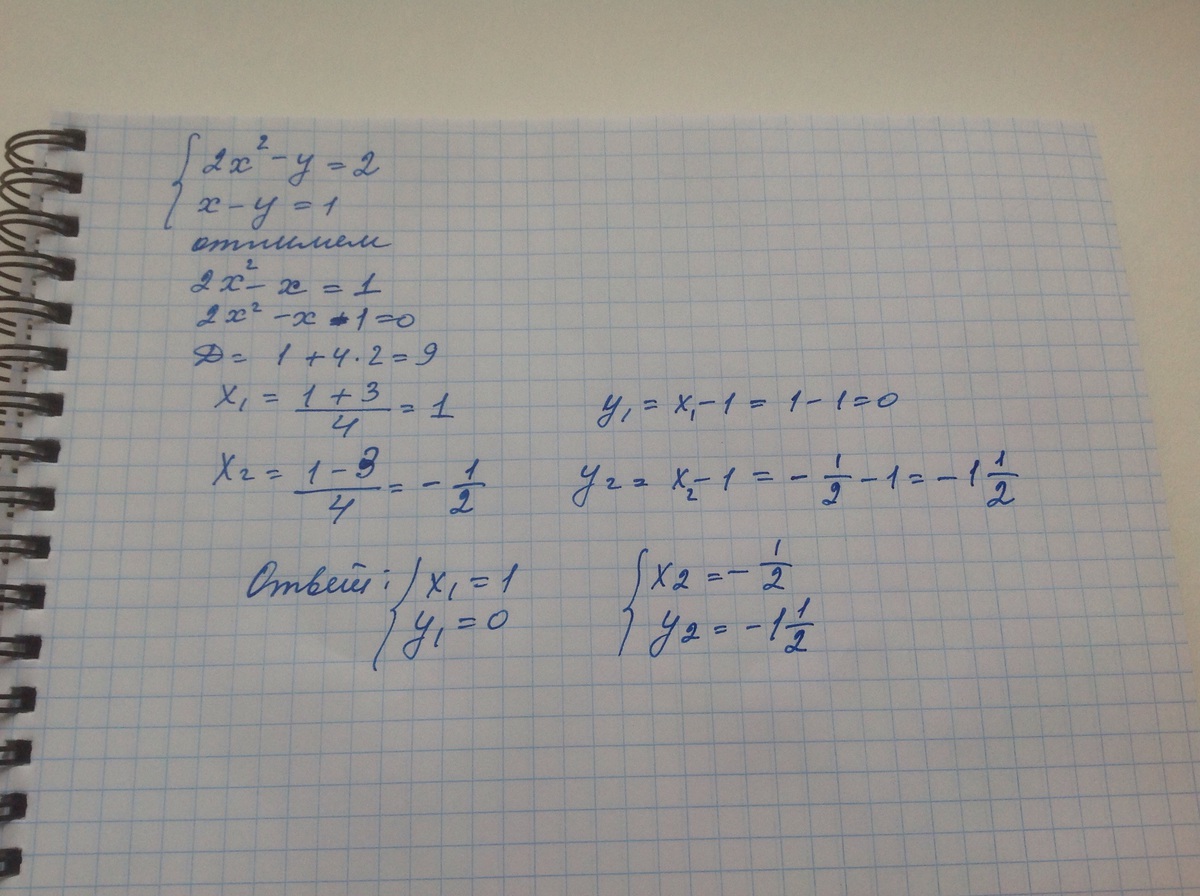 { 2x² - y = 2
x - y = 1
отнимем
2x² - x = 1
2x² - x - 1 = 0
D = 1 + 4 · 2 = 9
x₁ = (1 + 3)/4 = 1 y₁ = x₁ - 1 = 1 - 1 = 0
x₂ = (1 - 3)/4 = - 1/2 y₂ = x₂ - 1 = - 1/2 - 1 = - 1 1/2
Ответ: { x₁ = 1 { x₂ = - 1/2
y₁ = 0 y₂ = - 1 1/2